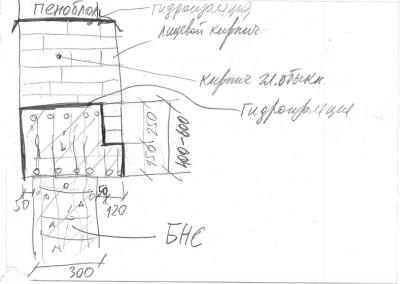 пеноблок
гидроизоляция
лицевой кирпич
кирпич гл. обыкн.
Гидроизоляция
150 250
400-600
50
50
120
БНС
300